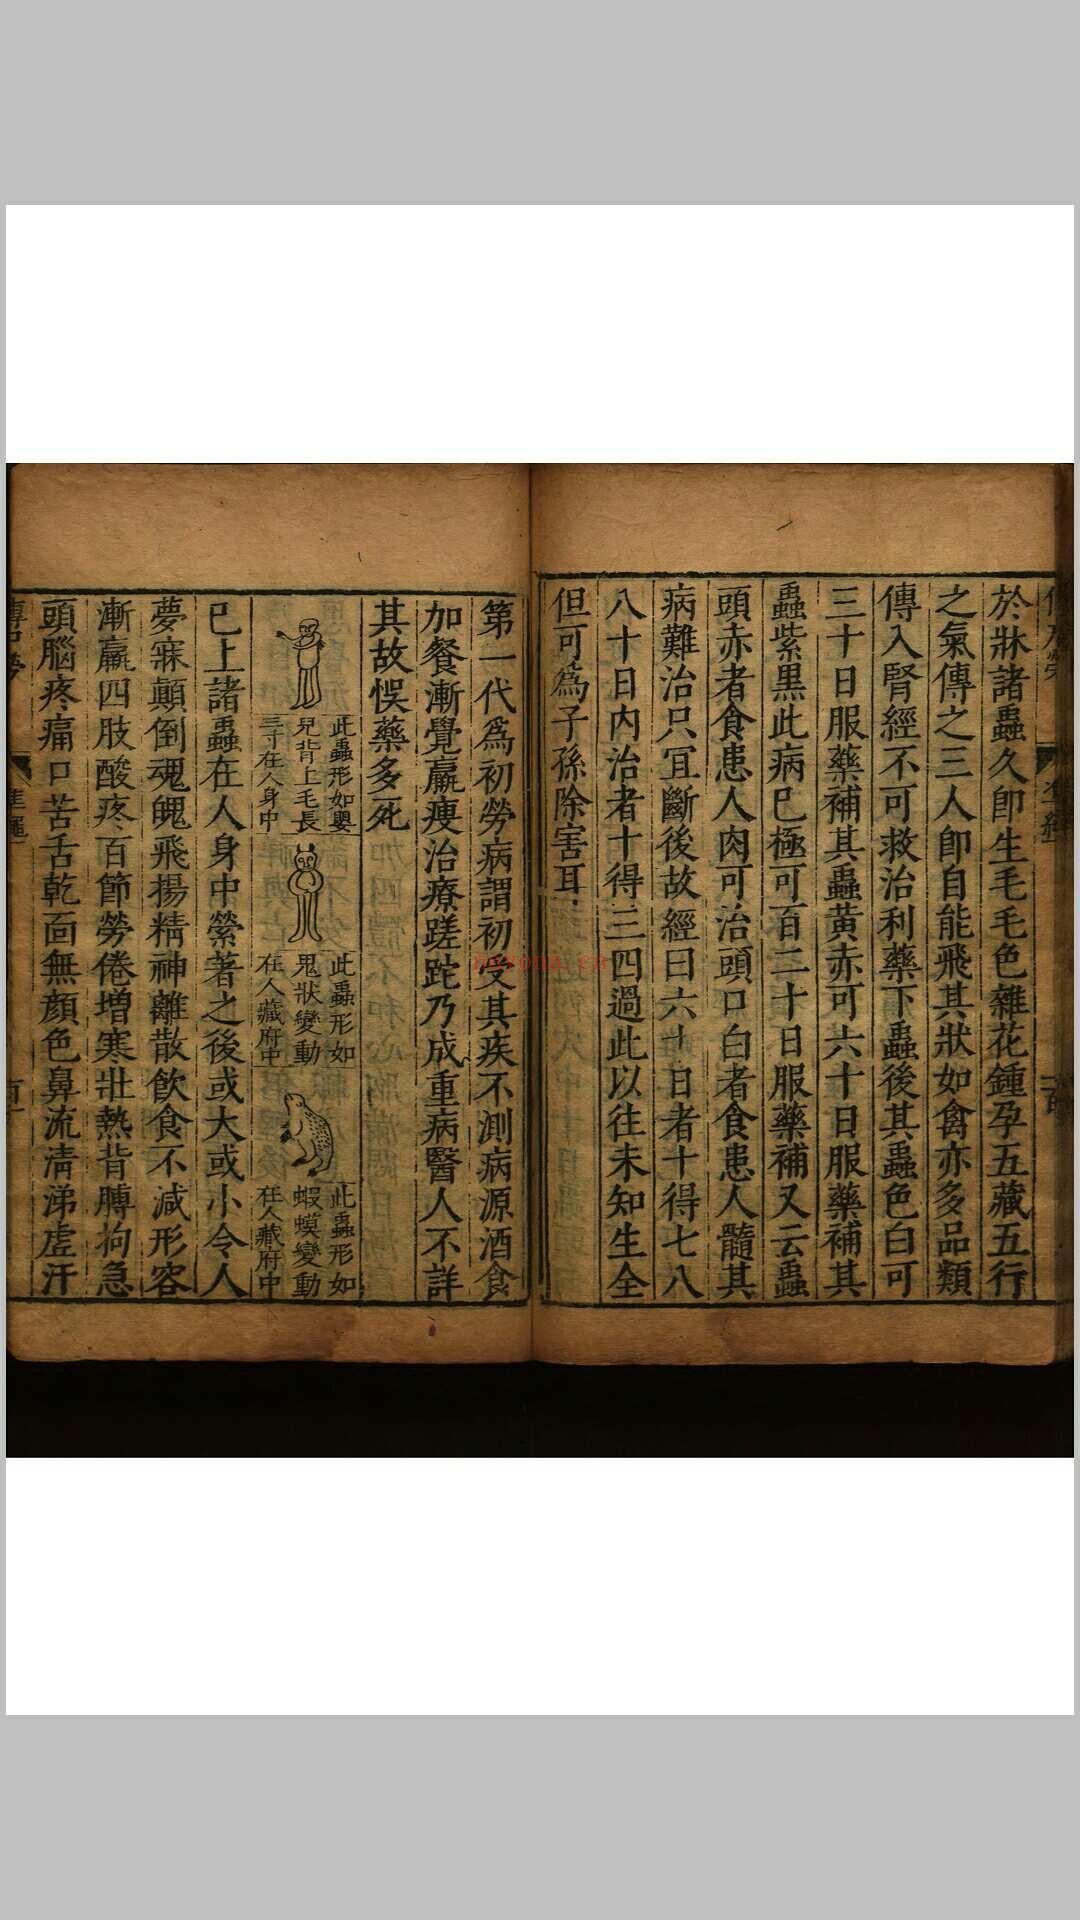 於牀諸蟲久即生毛毛色雜花鍾孕五藏五行
之氣傳之三人即自能飛其狀如禽亦多品類
傳入腎經不可救治利藥下蟲後其蟲色白可
三十日服藥補其蟲黃赤可六十日服藥補其
蟲紫黑此病已極可百二十日服藥補又云蟲
頭赤者食患人肉可治頭口白者食患人髓其
病難治只宜斷後故經曰六十日者十得七八
八十日內治者十得三四過此以往未知生全
但可為子孫除害耳
第一代為初勞病謂初受其疾不測病源酒食
加餐漸覺羸瘦治療蹉跎乃成重病醫人不詳
其故悮藥多死
此蟲形如嬰
兒背上毛長
三寸在人身中
此蟲形如
鬼狀變動
在人藏府中
此蟲形如
蝦蟆變動
在人藏府中
已上諸蟲在人身中縈著之後或大或小令人
夢寐顛倒魂魄飛揚精神離散飲食不減形容
漸羸四肢酸疼百節勞倦增寒壯熱背膊拘急
頭腦疼痛口苦舌乾面無顏色鼻流清涕虛汗